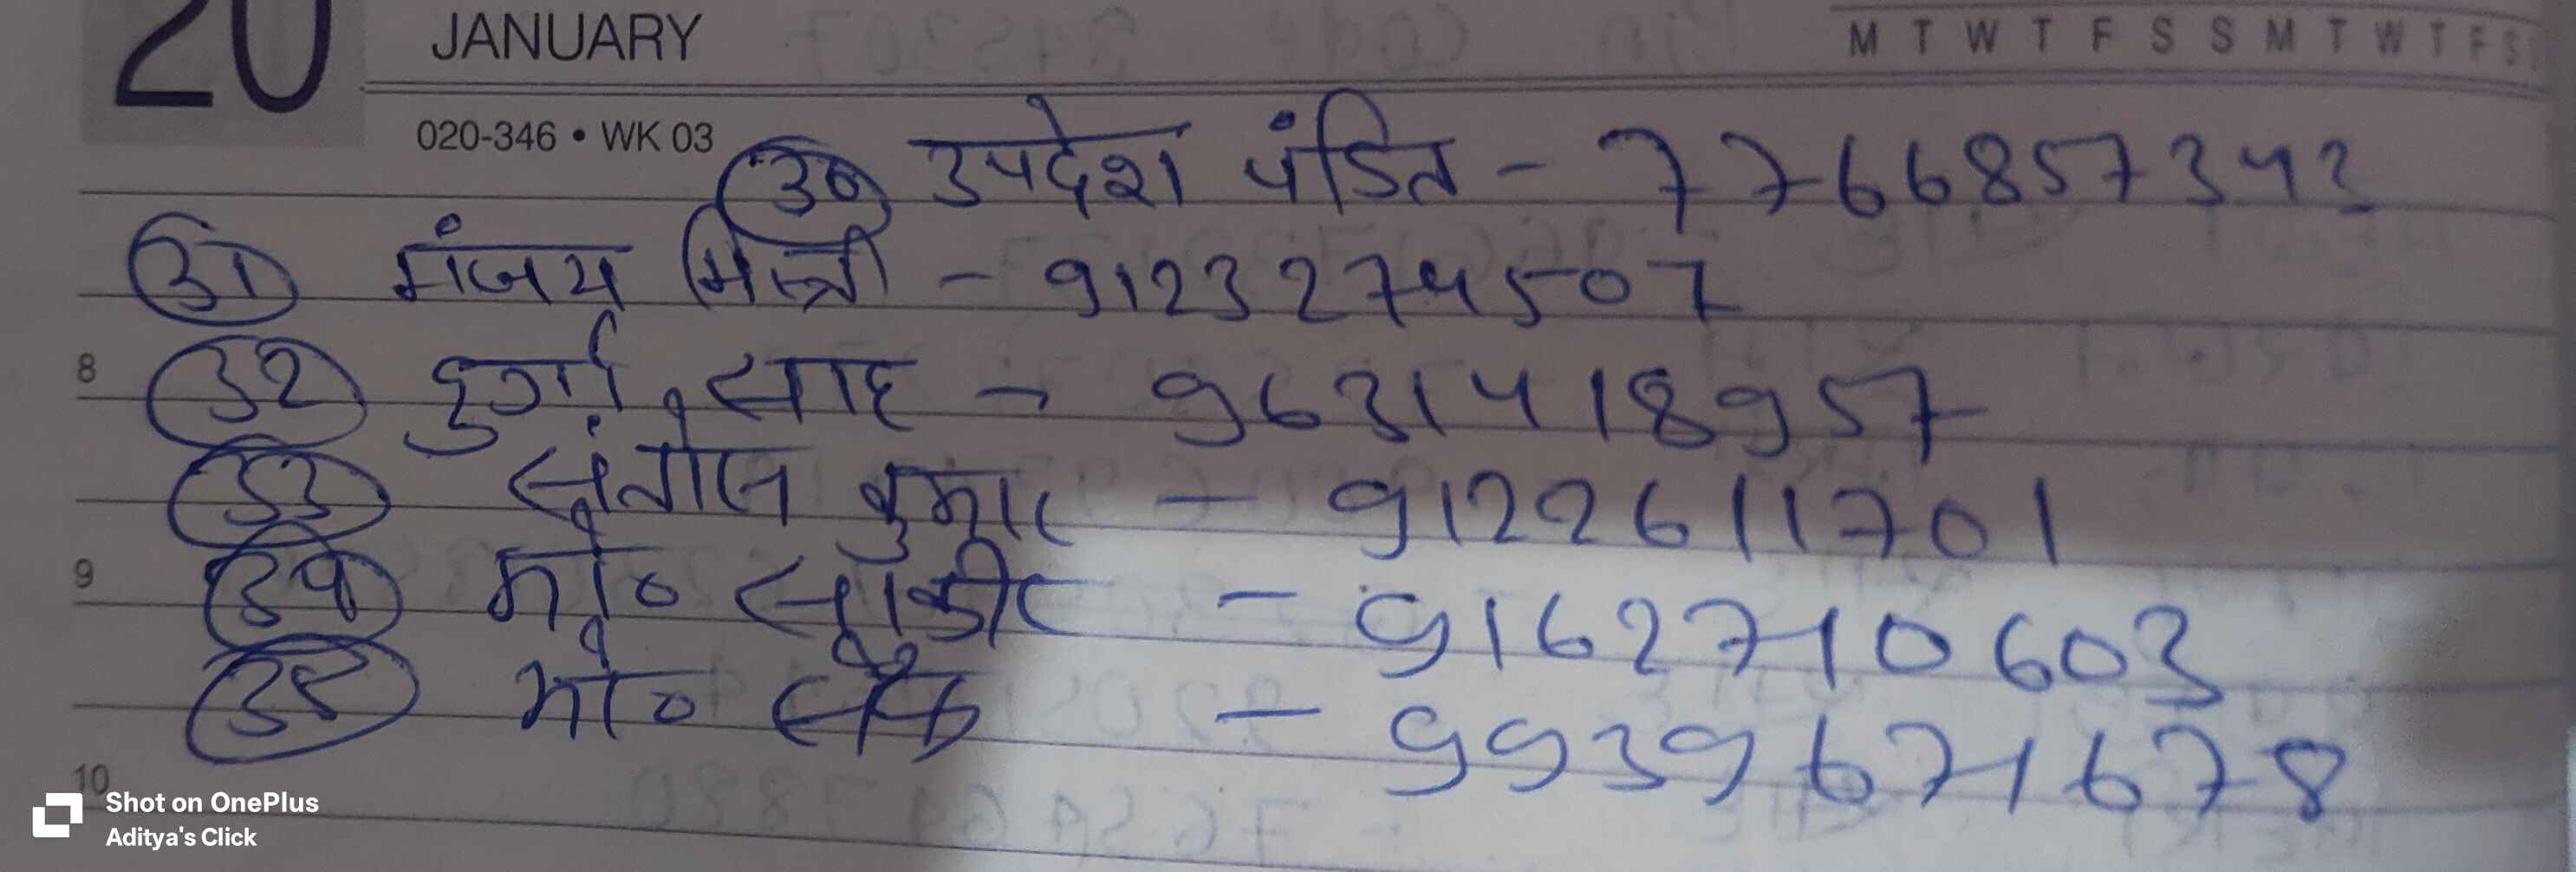 20 JANUARY
M T W T F S S M T W T F S
020-346 • WK 03
३० उपदेश पंडित - 7766857343
३१ संजय मिस्त्री - 9123274507
8
३२ दुर्गा साह - 9631418957
३३ संतोष कुमार - 9122611701
9
३४ मो० साकीर - 9162710603
३५ मो० सैफ - 9939671678
10
Shot on OnePlus
Aditya's Click